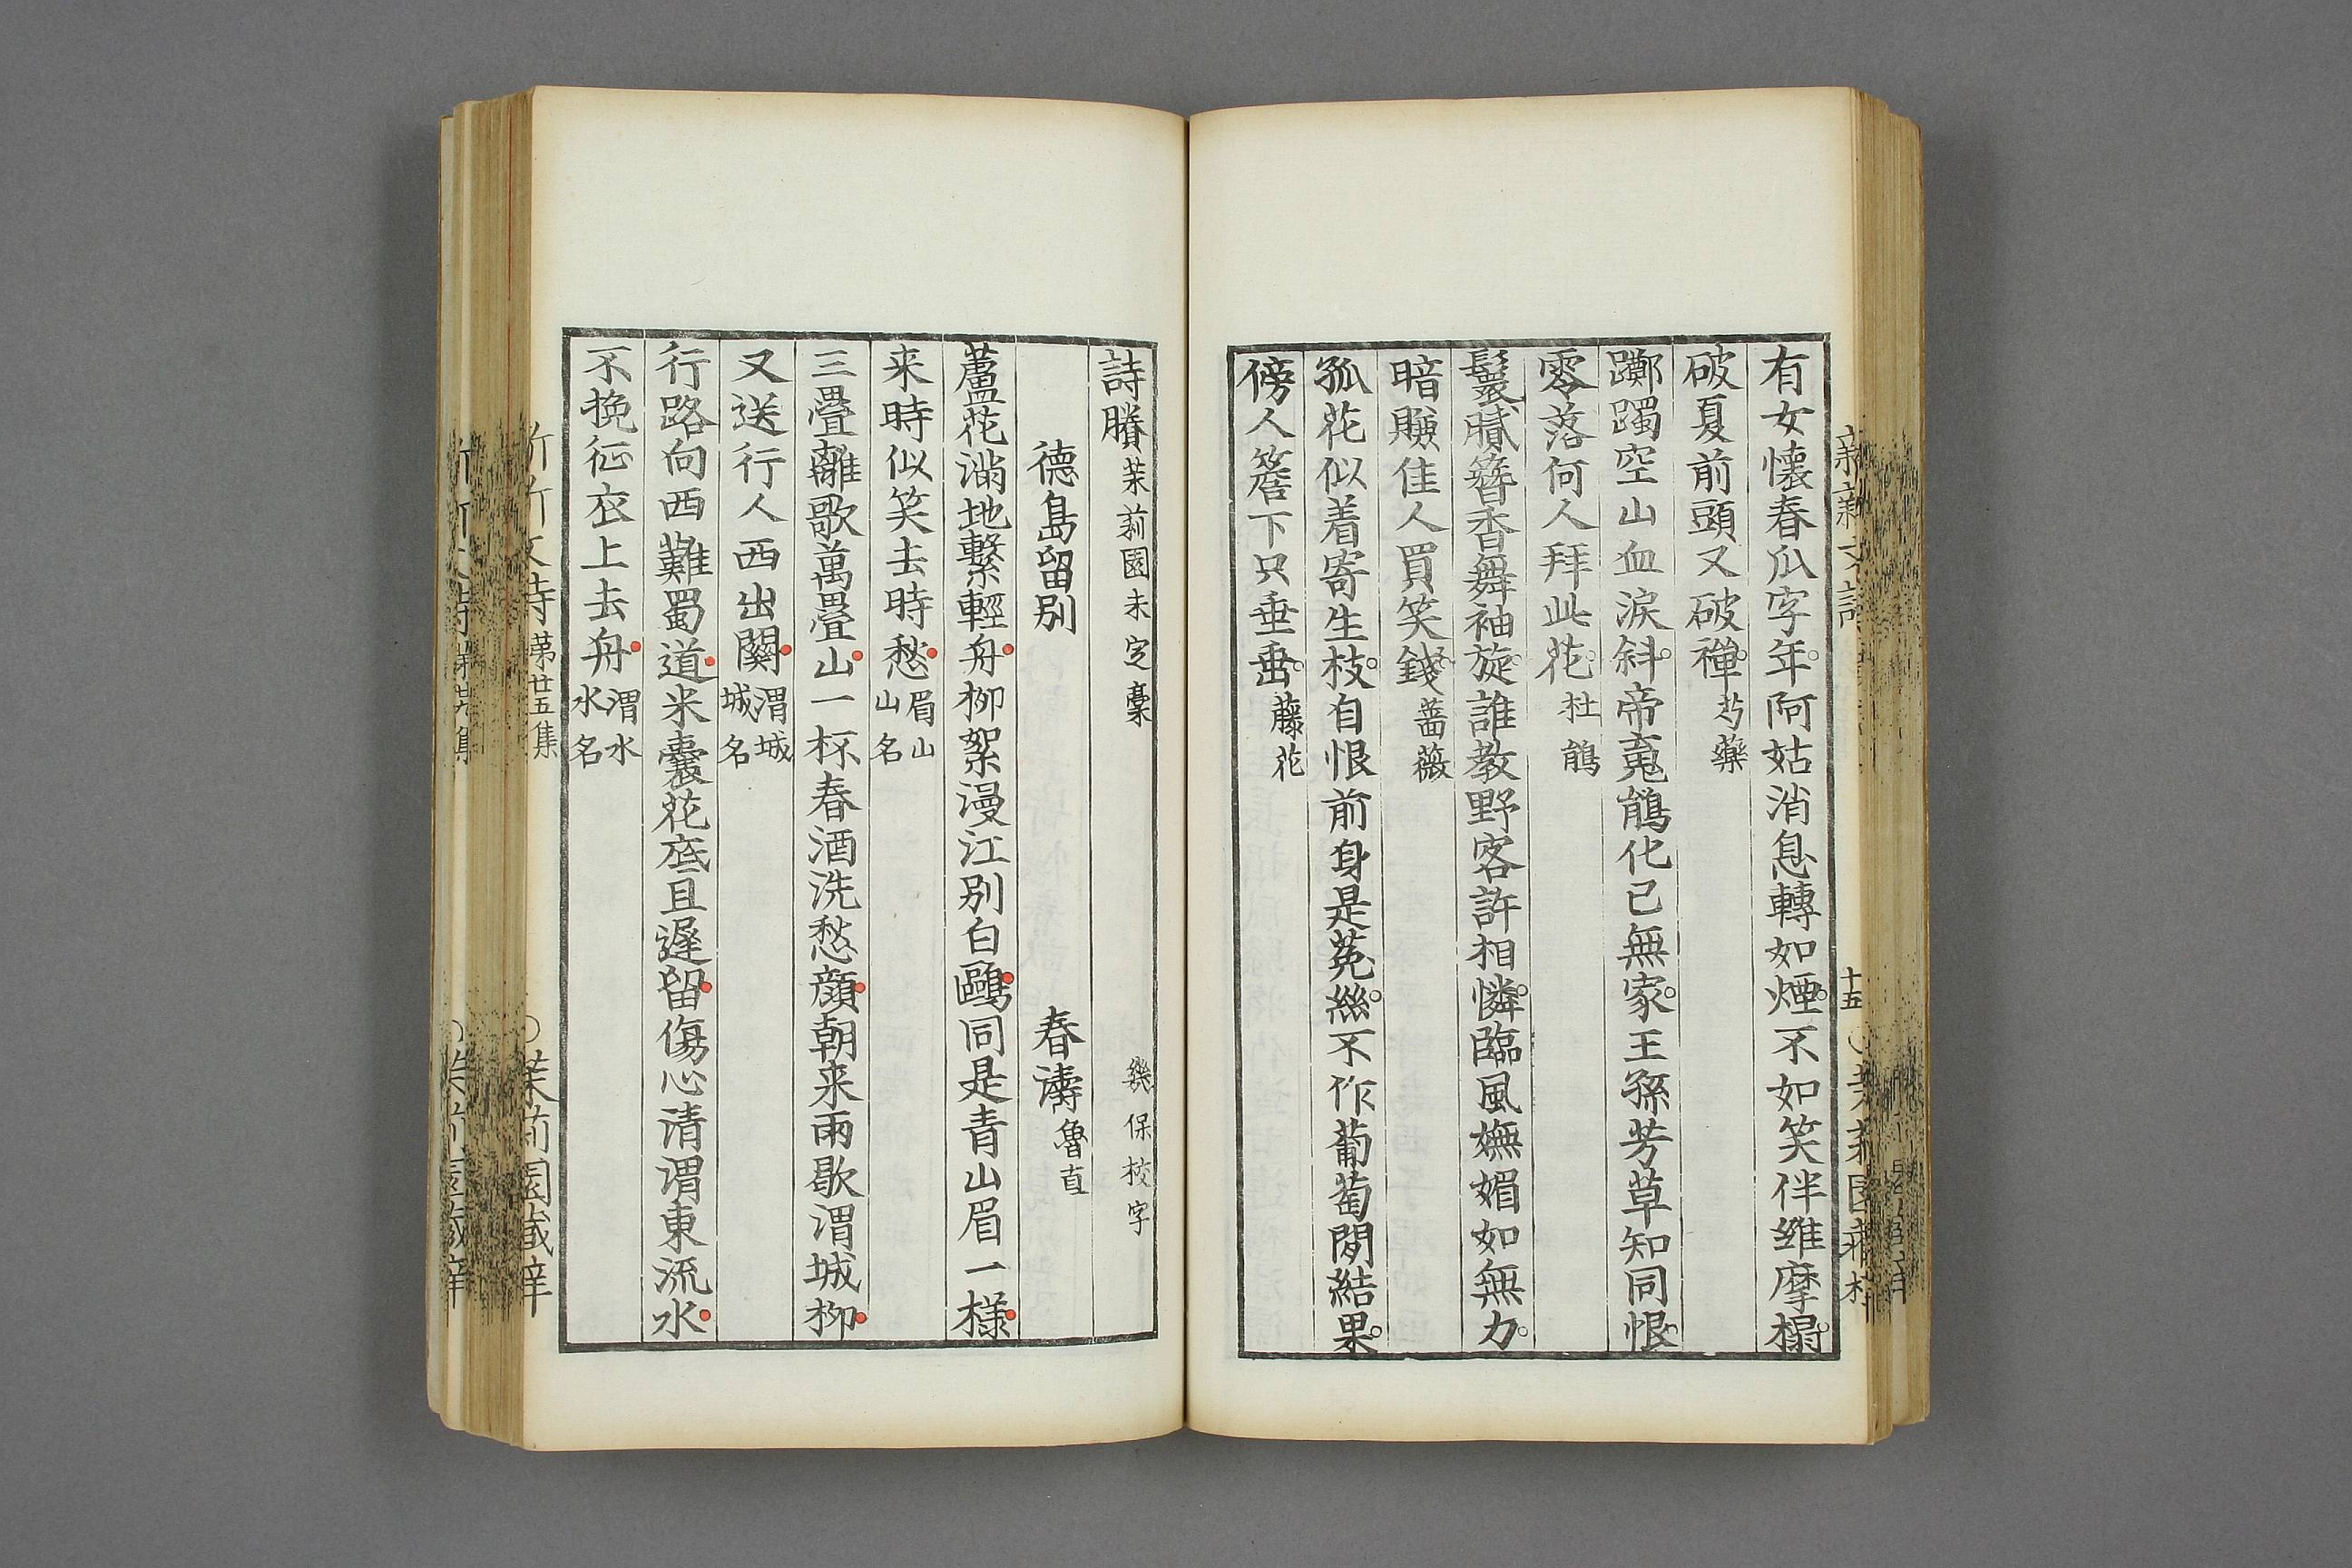 有女懷春瓜字年阿姑消息轉如煙不如笑伴維摩榻
破夏前頭又破禪芍藥
躑躅空山血淚斜帝䰟鵑化已無家王孫芳草知同恨
零落何人拜此花杜鵑
鬟膩簪香舞袖旋誰教野客許相憐臨風嫵媚如無力
暗賺佳人買笑錢薔薇
孤花似着寄生枝自恨前身是菟絲不作葡萄閒結果
傍人簷下只垂垂藤花
十五
詩賸茉莉園未定稾 幾保校字
德島留別 春濤魯直
蘆花滿地繫輕舟柳絮漫江別白鷗同是青山眉一樣
来時似笑去時愁眉山山名
三疊離歌萬疊山一杯春酒洗愁顔朝来雨歇渭城柳
又送行人西出關渭城城名
行路向西難蜀道米囊花底且遲留傷心清渭東流水
不挽征衣上去舟渭水水名
第廿五集